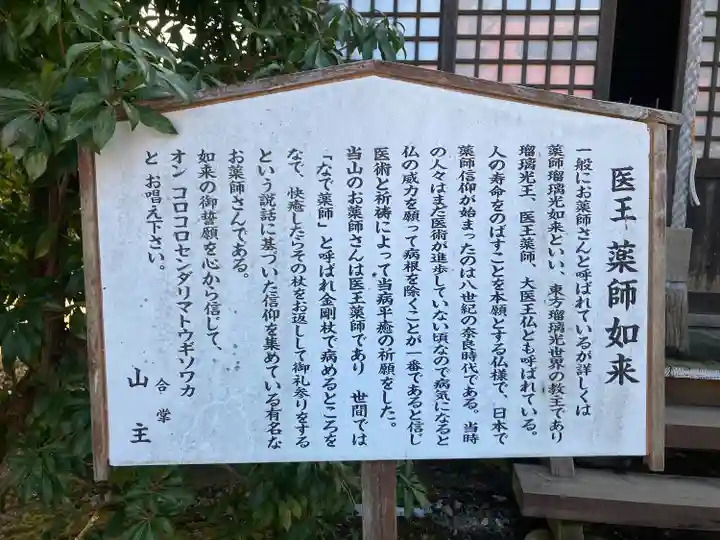 医王 薬師如来
一般にお薬師さんと呼ばれているが詳しくは
薬師瑠璃光如来といい、東方瑠璃光世界の教王であり
瑠璃光王、医王薬師、大医王仏とも呼ばれている。
人の寿命をのばすことを本願とする仏様で、日本で
薬師信仰が始まったのは八世紀の奈良時代である。当時
の人々はまだ医術が進歩していない頃なので病気になると
仏の威力を願って病根を除くことが一番であると信じ
医術と祈禱によって当病平癒の祈願をした。
当山のお薬師さんは医王薬師であり 世間では
「なで薬師」と呼ばれ金剛杖で病めるところを
なで、快癒したらその杖をお返しして御礼参りをする
という説話に基づいた信仰を集めている有名な
お薬師さんである。
如来の御誓願を心から信じて、
オン コロコロセンダリマトウギソワカ
と お唱え下さい。
合掌
山主